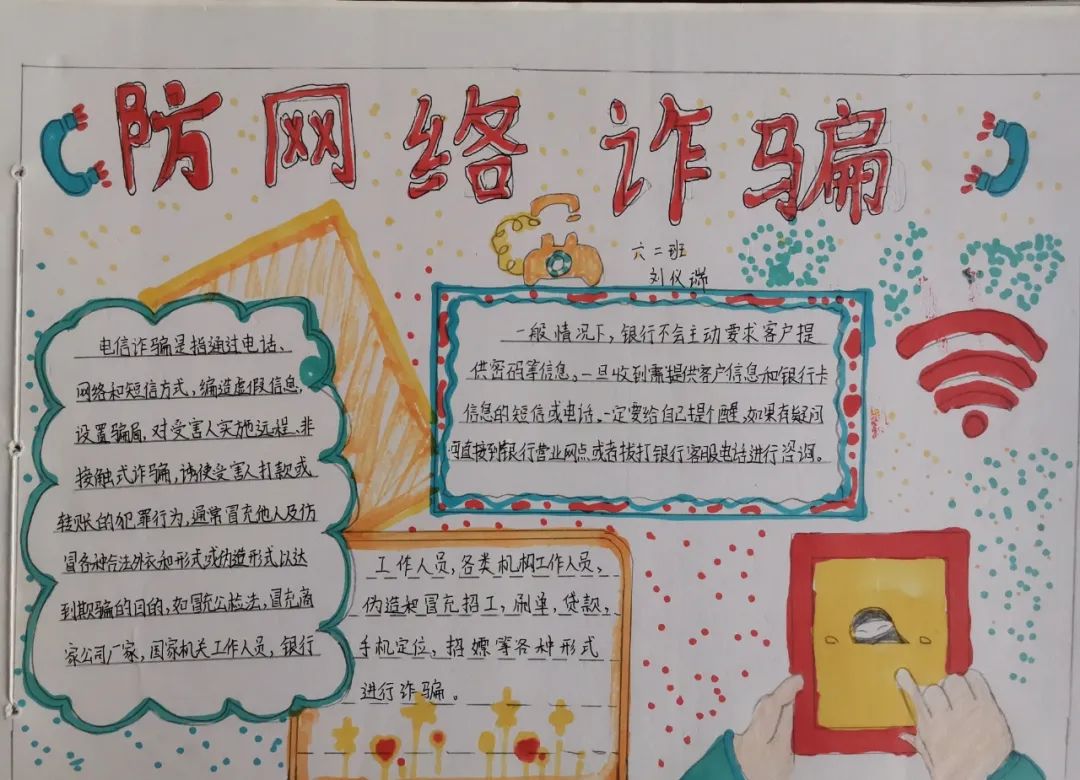 防网络诈骗
六二班
刘仪瑞
电信诈骗是指通过电话、
网络和短信方式,编造虚假信息,
设置骗局,对受害人实施远程、非
接触式诈骗,诱使受害人打款或
转账的犯罪行为,通常冒充他人及仿
冒各种合法外衣和形式或伪造形式以达
到欺骗的目的,如冒充公检法,冒充商
家公司厂家,国家机关工作人员,银行
工作人员,各类机构工作人员,
伪造和冒充招工,刷单,贷款,
手机定位,招嫖等各种形式
进行诈骗。
一般情况下,银行不会主动要求客户提
供密码等信息。一旦收到需提供客户信息和银行卡
信息的短信或电话。一定要给自己提个醒,如果有疑问
直接到银行营业网点或者拨打银行客服电话进行咨询。